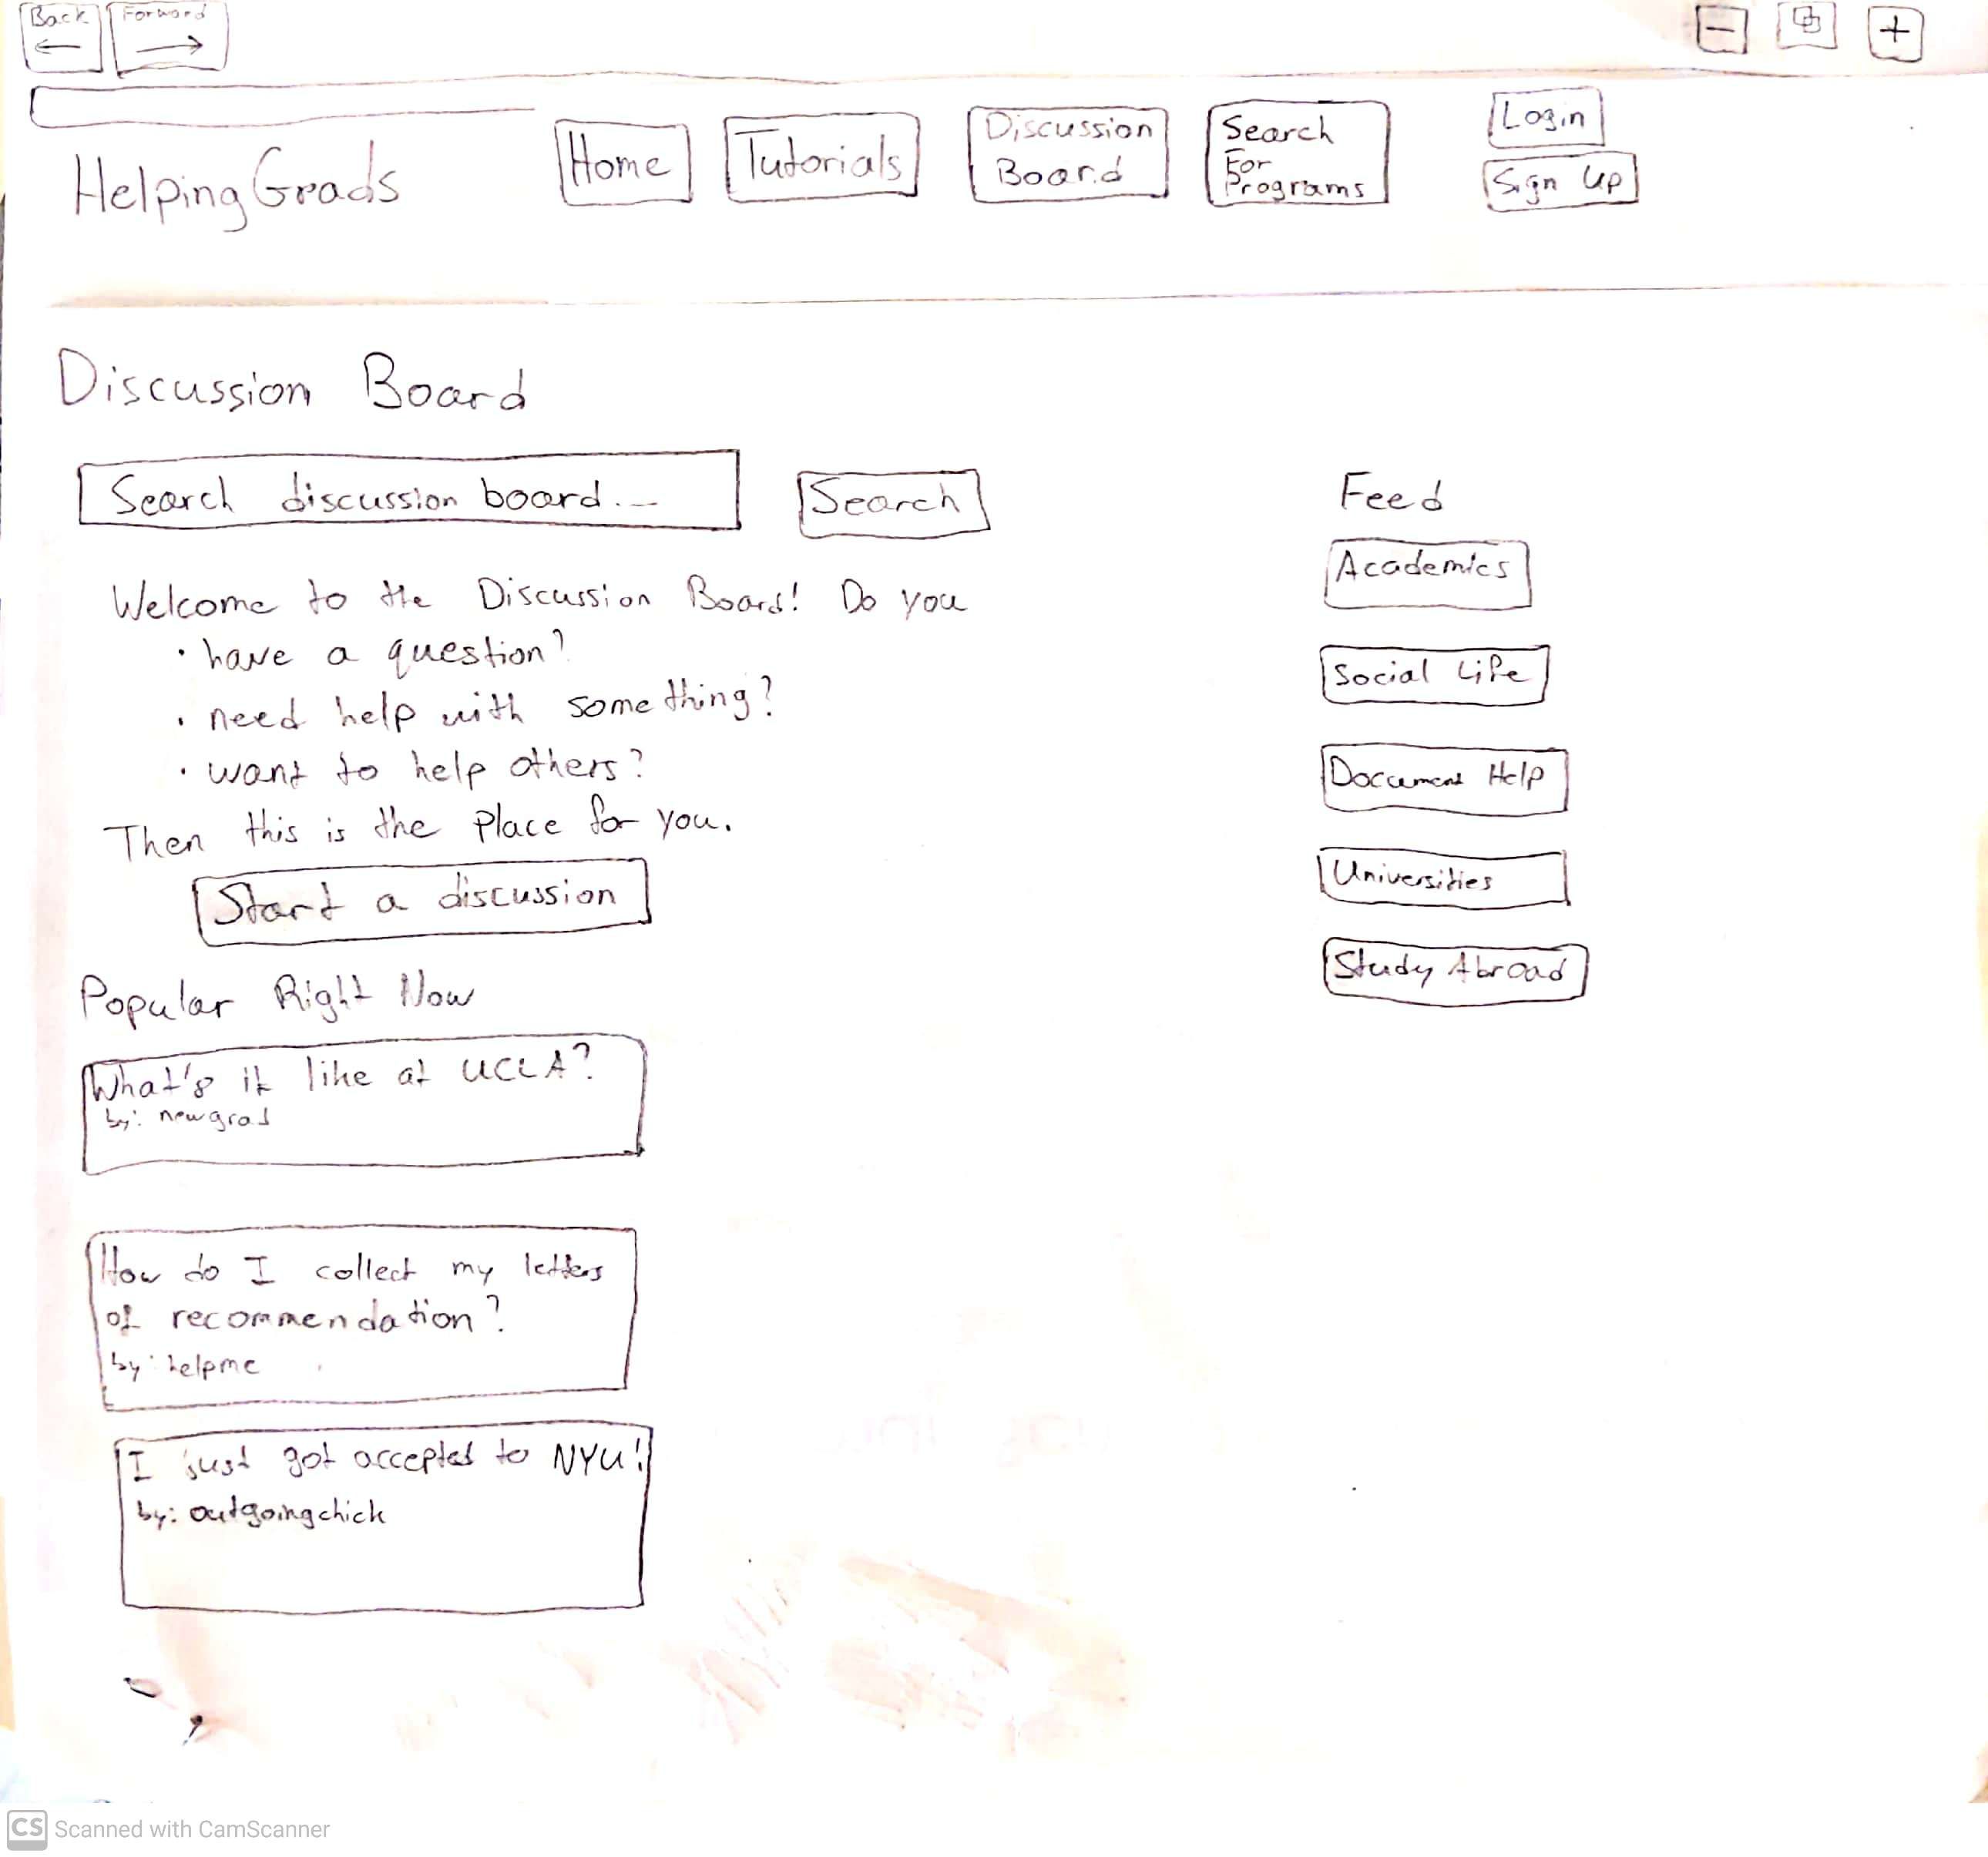 Back Forward
HelpingGrads
Home
Tutorials
Discussion
Board
Search
For
Programs
Login
Sign Up
Discussion Board
Search discussion board...
Search
Welcome to the Discussion Board! Do you
• have a question?
• need help with something?
• want to help others?
Then this is the place for you.
Start a discussion
Popular Right Now
What's it like at UCLA?
by: newgrad
How do I collect my letters
of recommendation?
by: helpme
I just got accepted to NYU!
by: outgoingchick
Feed
Academics
Social Life
Document Help
Universities
Study Abroad
CS Scanned with CamScanner